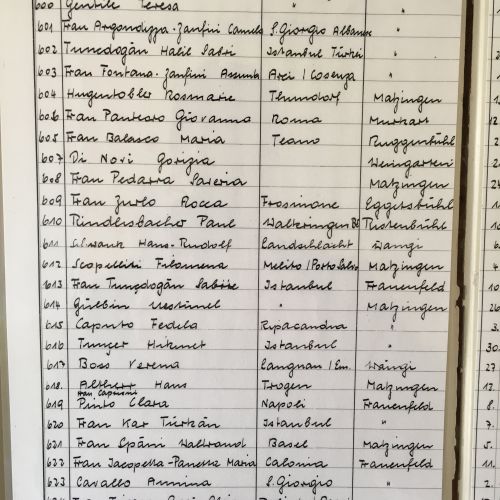 600 Gentile Teresa "
601 Frau Argondizza-Zanfini Camela S. Giorgio Albanese "
602 Tuncdogân Halil Sabri Istanbul Türkei "
603 Frau Fontana-Zanfini Assunta Acri / Cosenza "
604 Hugentobler Rosmarie Thundorf Matzingen
606 Frau Panteoro Giovanna Roma Murkart
605 Frau Balasco Maria Teano Ruggenbühl
607 Di Novi Gorizia Weingarten
608 Frau Pedarra Saveria Matzingen
609 Frau Zurlo Rocca Frosinone Eggetsbühl
610 Rindlisbacher Paul Walkringen Be Ristenbühl
611 Schwank Hans-Rudolf Landschlacht Wängi
612 Scopelliti Filomena Melito / Porto Salvo Matzingen
613 Frau Tunçdoğân Sabire Istanbul Frauenfeld
614 Gülbin " Matzingen
615 Caputo Fedela Ripacandia "
616 Tunçer Hikmet Istanbul "
617 Boss Verena Langnau / Em. Wängi
618. Altherr Hans Trogen Matzingen
619 Pinto Clara Napoli Frauenfeld
620 Frau Kar Türkân Istanbul "
621 Frau Späni Waltraud Basel Matzingen
622 Frau Jacopetta-Panetta Maria Calonia Frauenfeld
623 Cavallo Annina S. Giorgio "